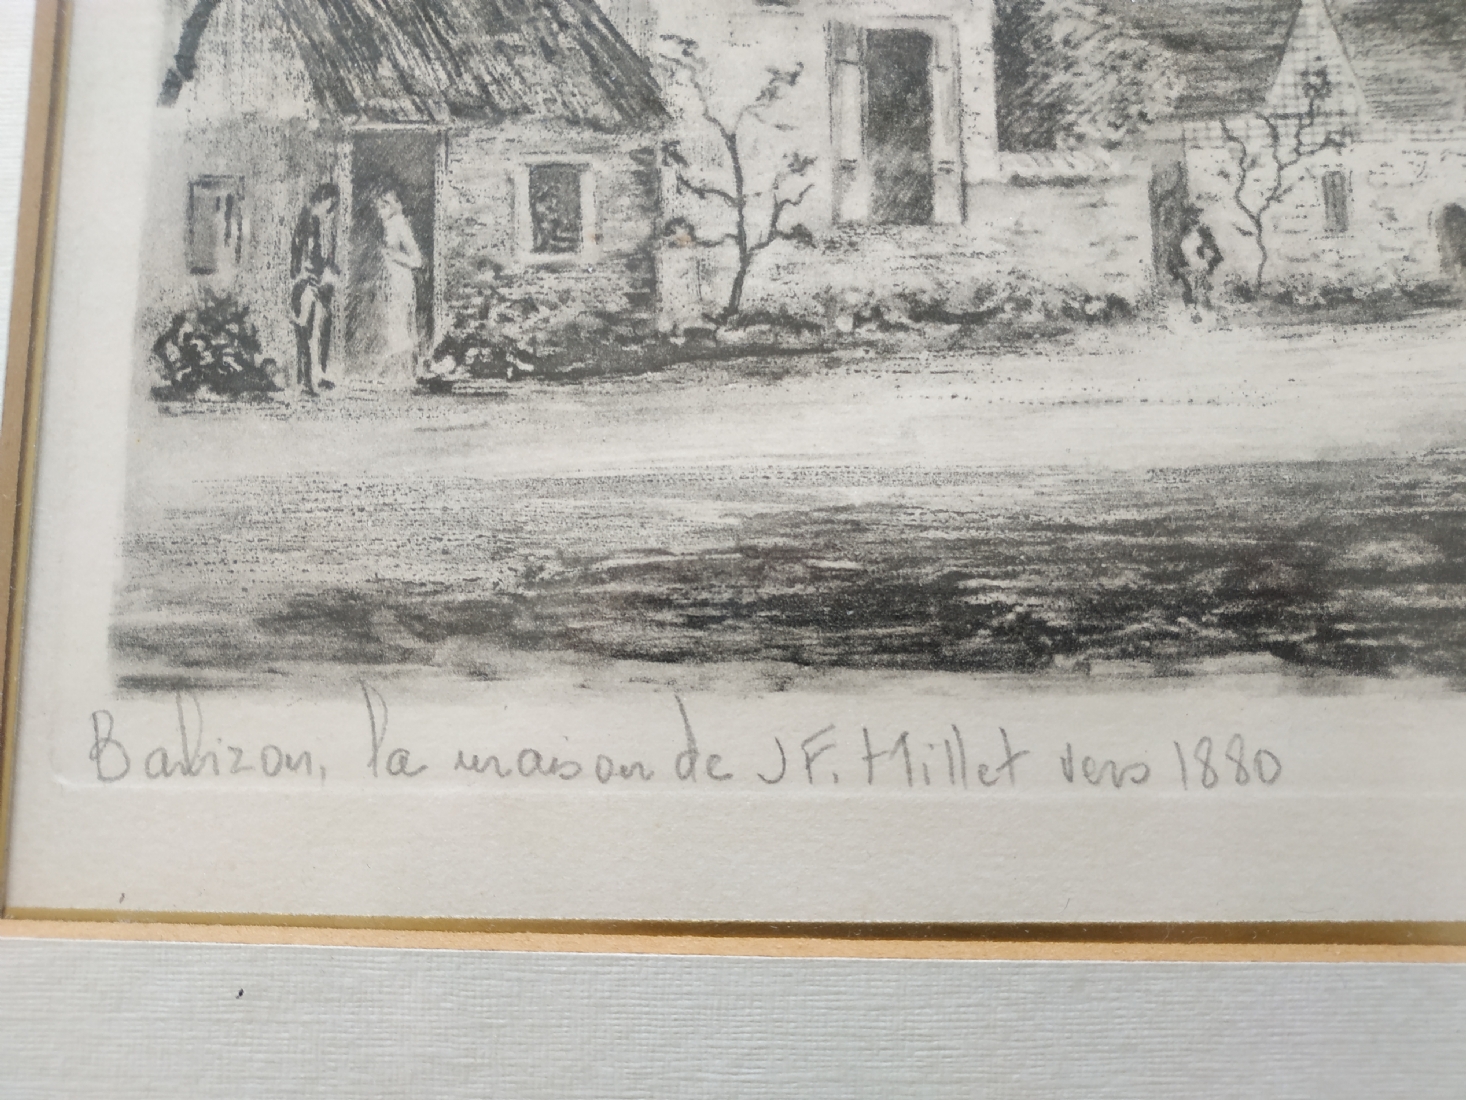 Barbizon, la maison de J F. Millet vers 1880